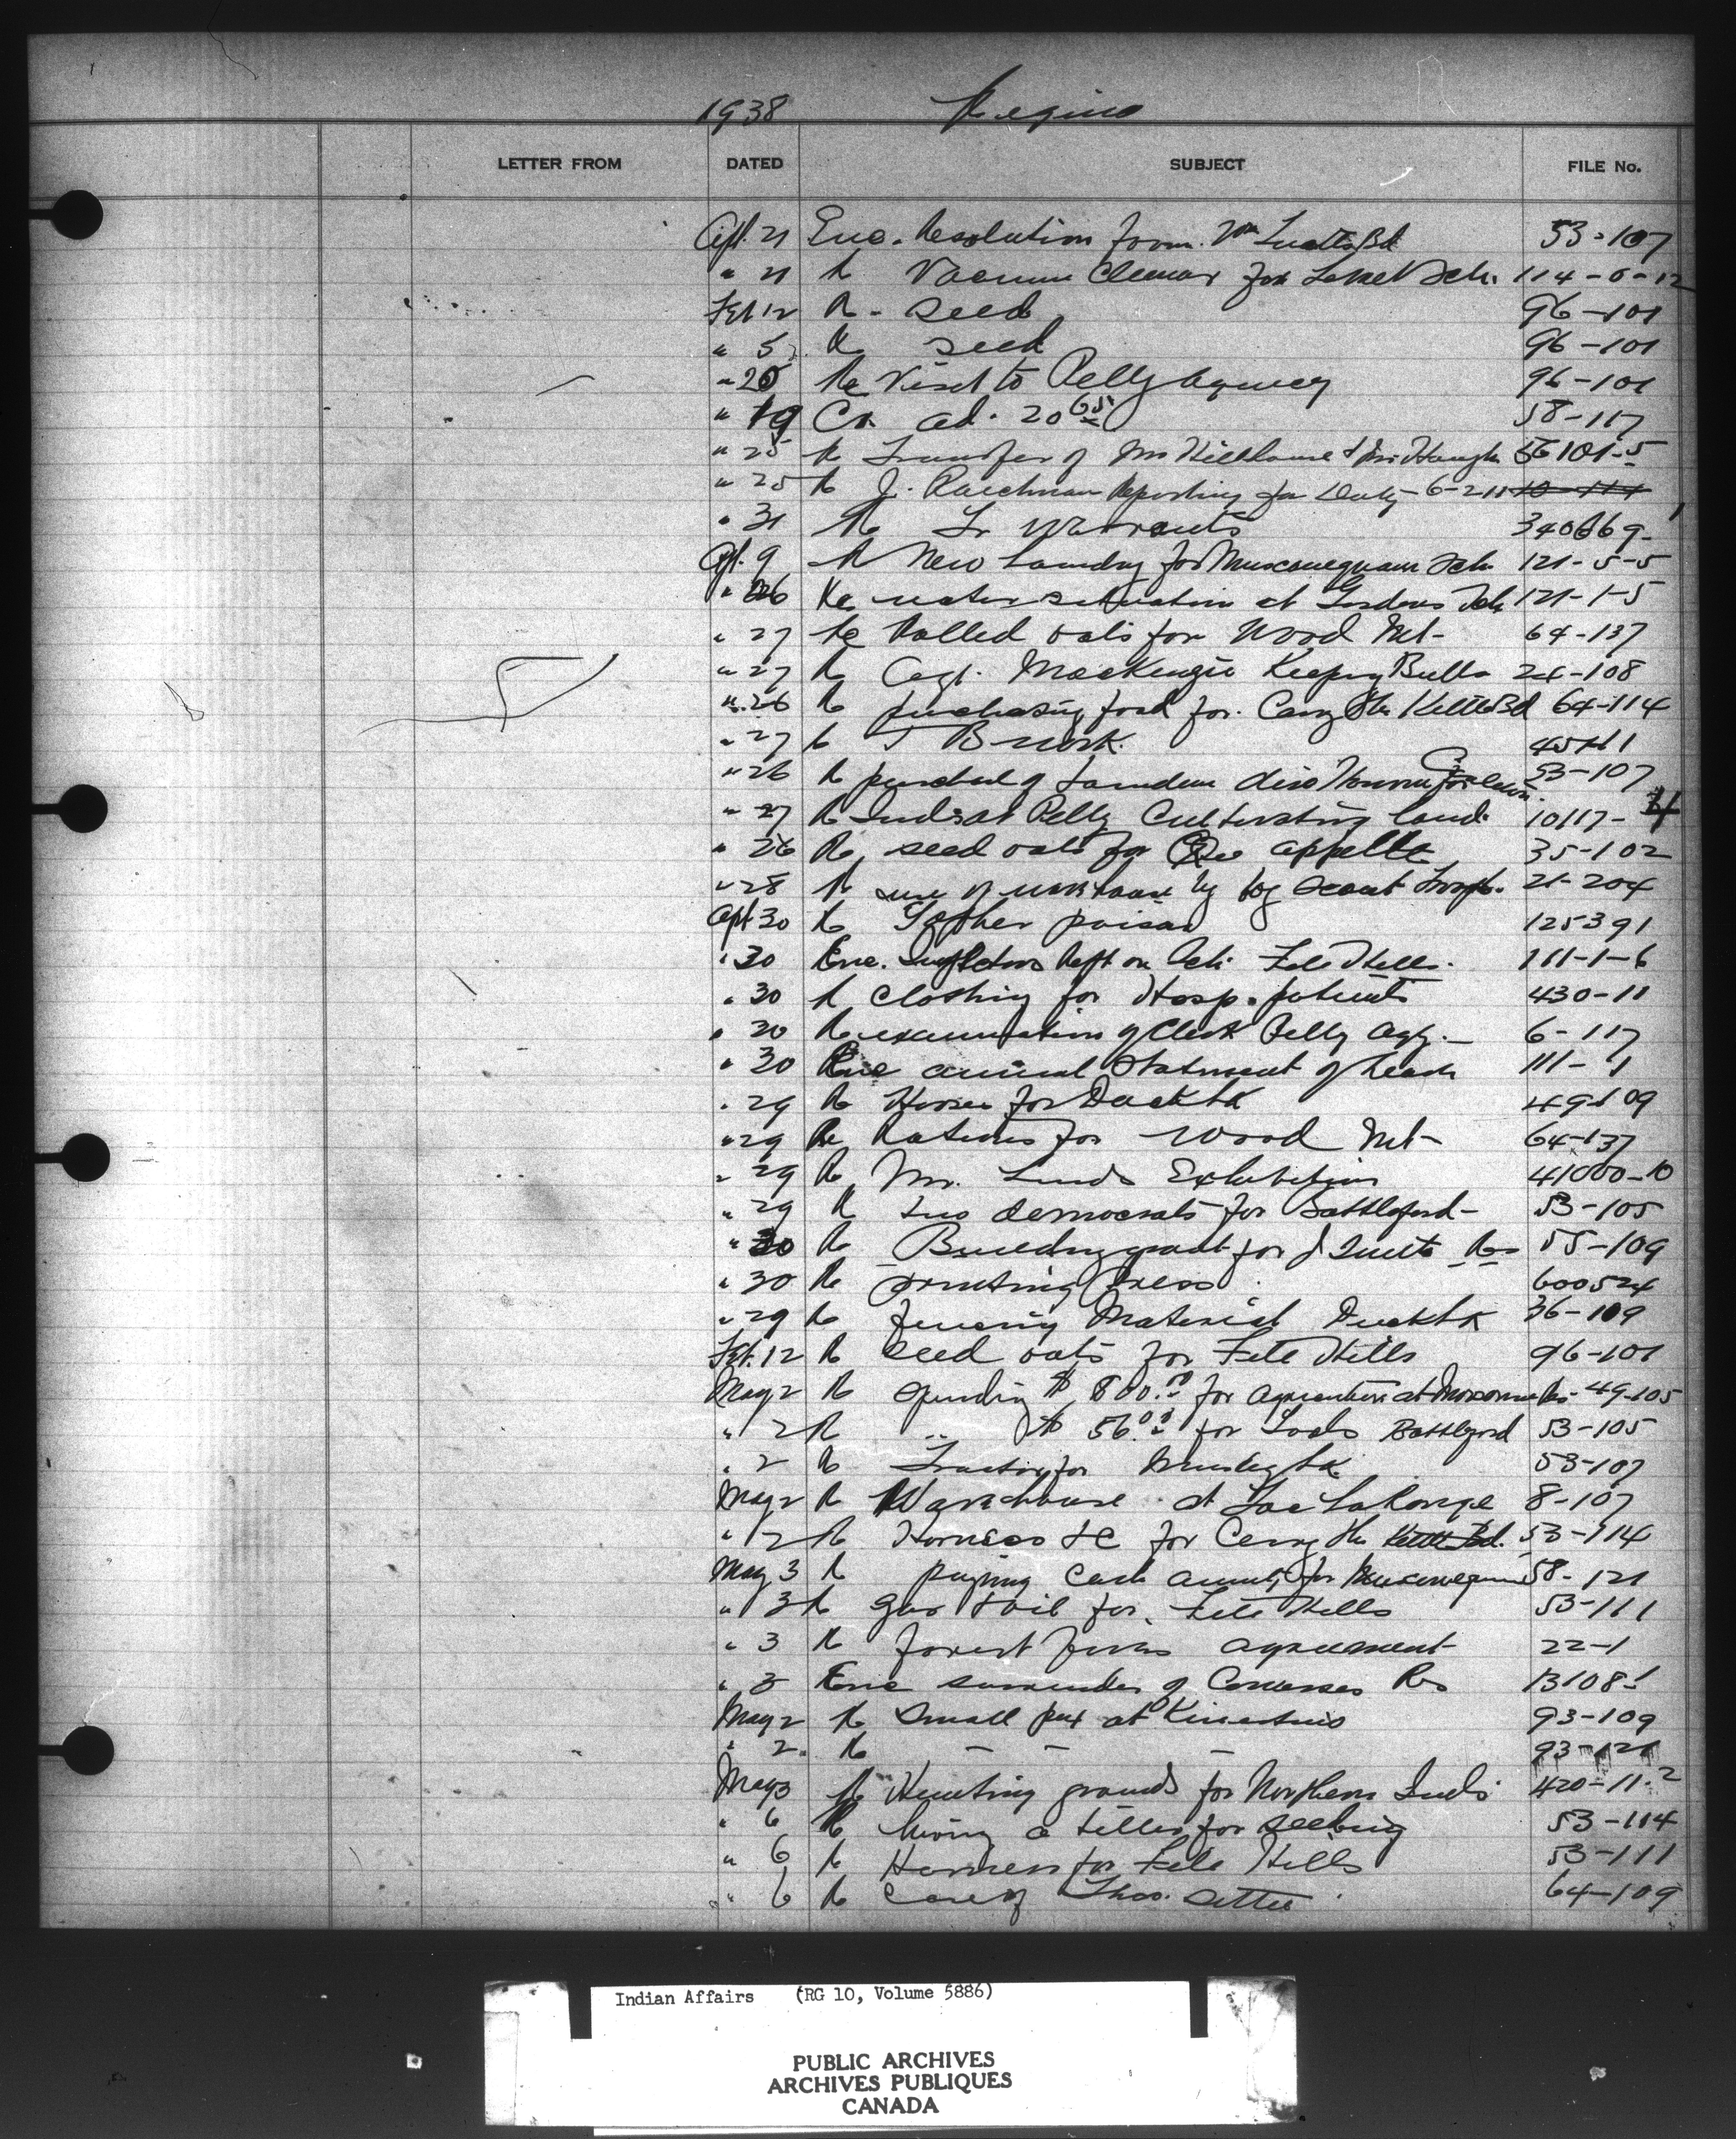 1938 Regina
LETTER FROM DATED SUBJECT FILE No.
Apl. 21 Enc. Resolution from Bd 53-107
" 21 Re Vacuum Cleaner for Sch. 114-6-12
Feb 12 Re - seed 96-101
" 5 Re seed 96-101
" 20 Re Visit to Pelly Agency 96-101
" 19 Ck. ad. 20 65 58-117
" 25 Re Transfer of Mr & Mr 101-5
" 25 Re J. Reporting for Duty - 6-2-11 10-114
" 31 Re Warrants 340669-1
Apl. 9 Re New Laundry for Muscowequan Sch 121-5-5
" 26 Re water situation at Gordons Sch 121-1-5
" 27 Re Rolled oats for Wood Mt- 64-137
" 27 Re Agt. MacKenzie Keeping Bulls 24-108
" 26 Re purchasing food for Carry the Kettle Bd 64-114
" 27 Re T B work.
" 26 Re purchase of tandem disc 53-107
" 27 Re Inds at Pelly Cultivating land. 10117-4
" 26 Re seed oats for Qu Appelle 35-102
" 28 Re use of warehouse by Boy Scout 21-204
Apl 30 Re Gopher poison 125391
" 30 Enc. Inspectors Rept on Sch. File Hills. 111-1-6
" 30 Re Clothing for Hosp. patients 430-11
" 30 Re examination of Clerk Pelly Agy. 6-117
" 30 Enc annual Statement of 111-1
" 29 Re Horses for Duck Lk 49-109
" 29 Re Rations for Wood Mt- 64-137
" 29 Re Mr. Exhibition 41000-10
" 29 Re two democrats for Battleford- 53-105
" 30 Re Building grant for J 55-109
" 30 Re printing Press 600524
" 29 Re fencing Material Duck Lk 36-109
Feb. 12 Re seed oats for File Hills 96-101
May 2 Re spending $ 800.00 for agriculture at 49-105
" 2 Re " $ 56.00 for Tools Battleford 53-105
" 2 Re Tractor for 53-107
May 2 Re Warehouse at Lac La Ronge 8-107
" 2 Re Harness &c for Carry the Kettle Bd. 53-114
May 3 Re paying Cash for Muscowequan 58-121
" 3 Re gas & oil for File Hills 53-111
" 3 Re forest fires agreement 22-1
" 3 Enc surrender of Cowesses Res 13108-1
May 2 Re Small pox at Kinistino 93-109
" 2 Re - - - 93-121
May 3 Re Hunting grounds for Northern Inds. 420-11-2
" 6 Re hiring a tiller for seeding 53-114
" 6 Re Harness for File Hills 53-111
" 6 Re Care of Thos. Settee 64-109
Indian Affairs (RG 10, Volume 5886)
PUBLIC ARCHIVES
ARCHIVES PUBLIQUES
CANADA